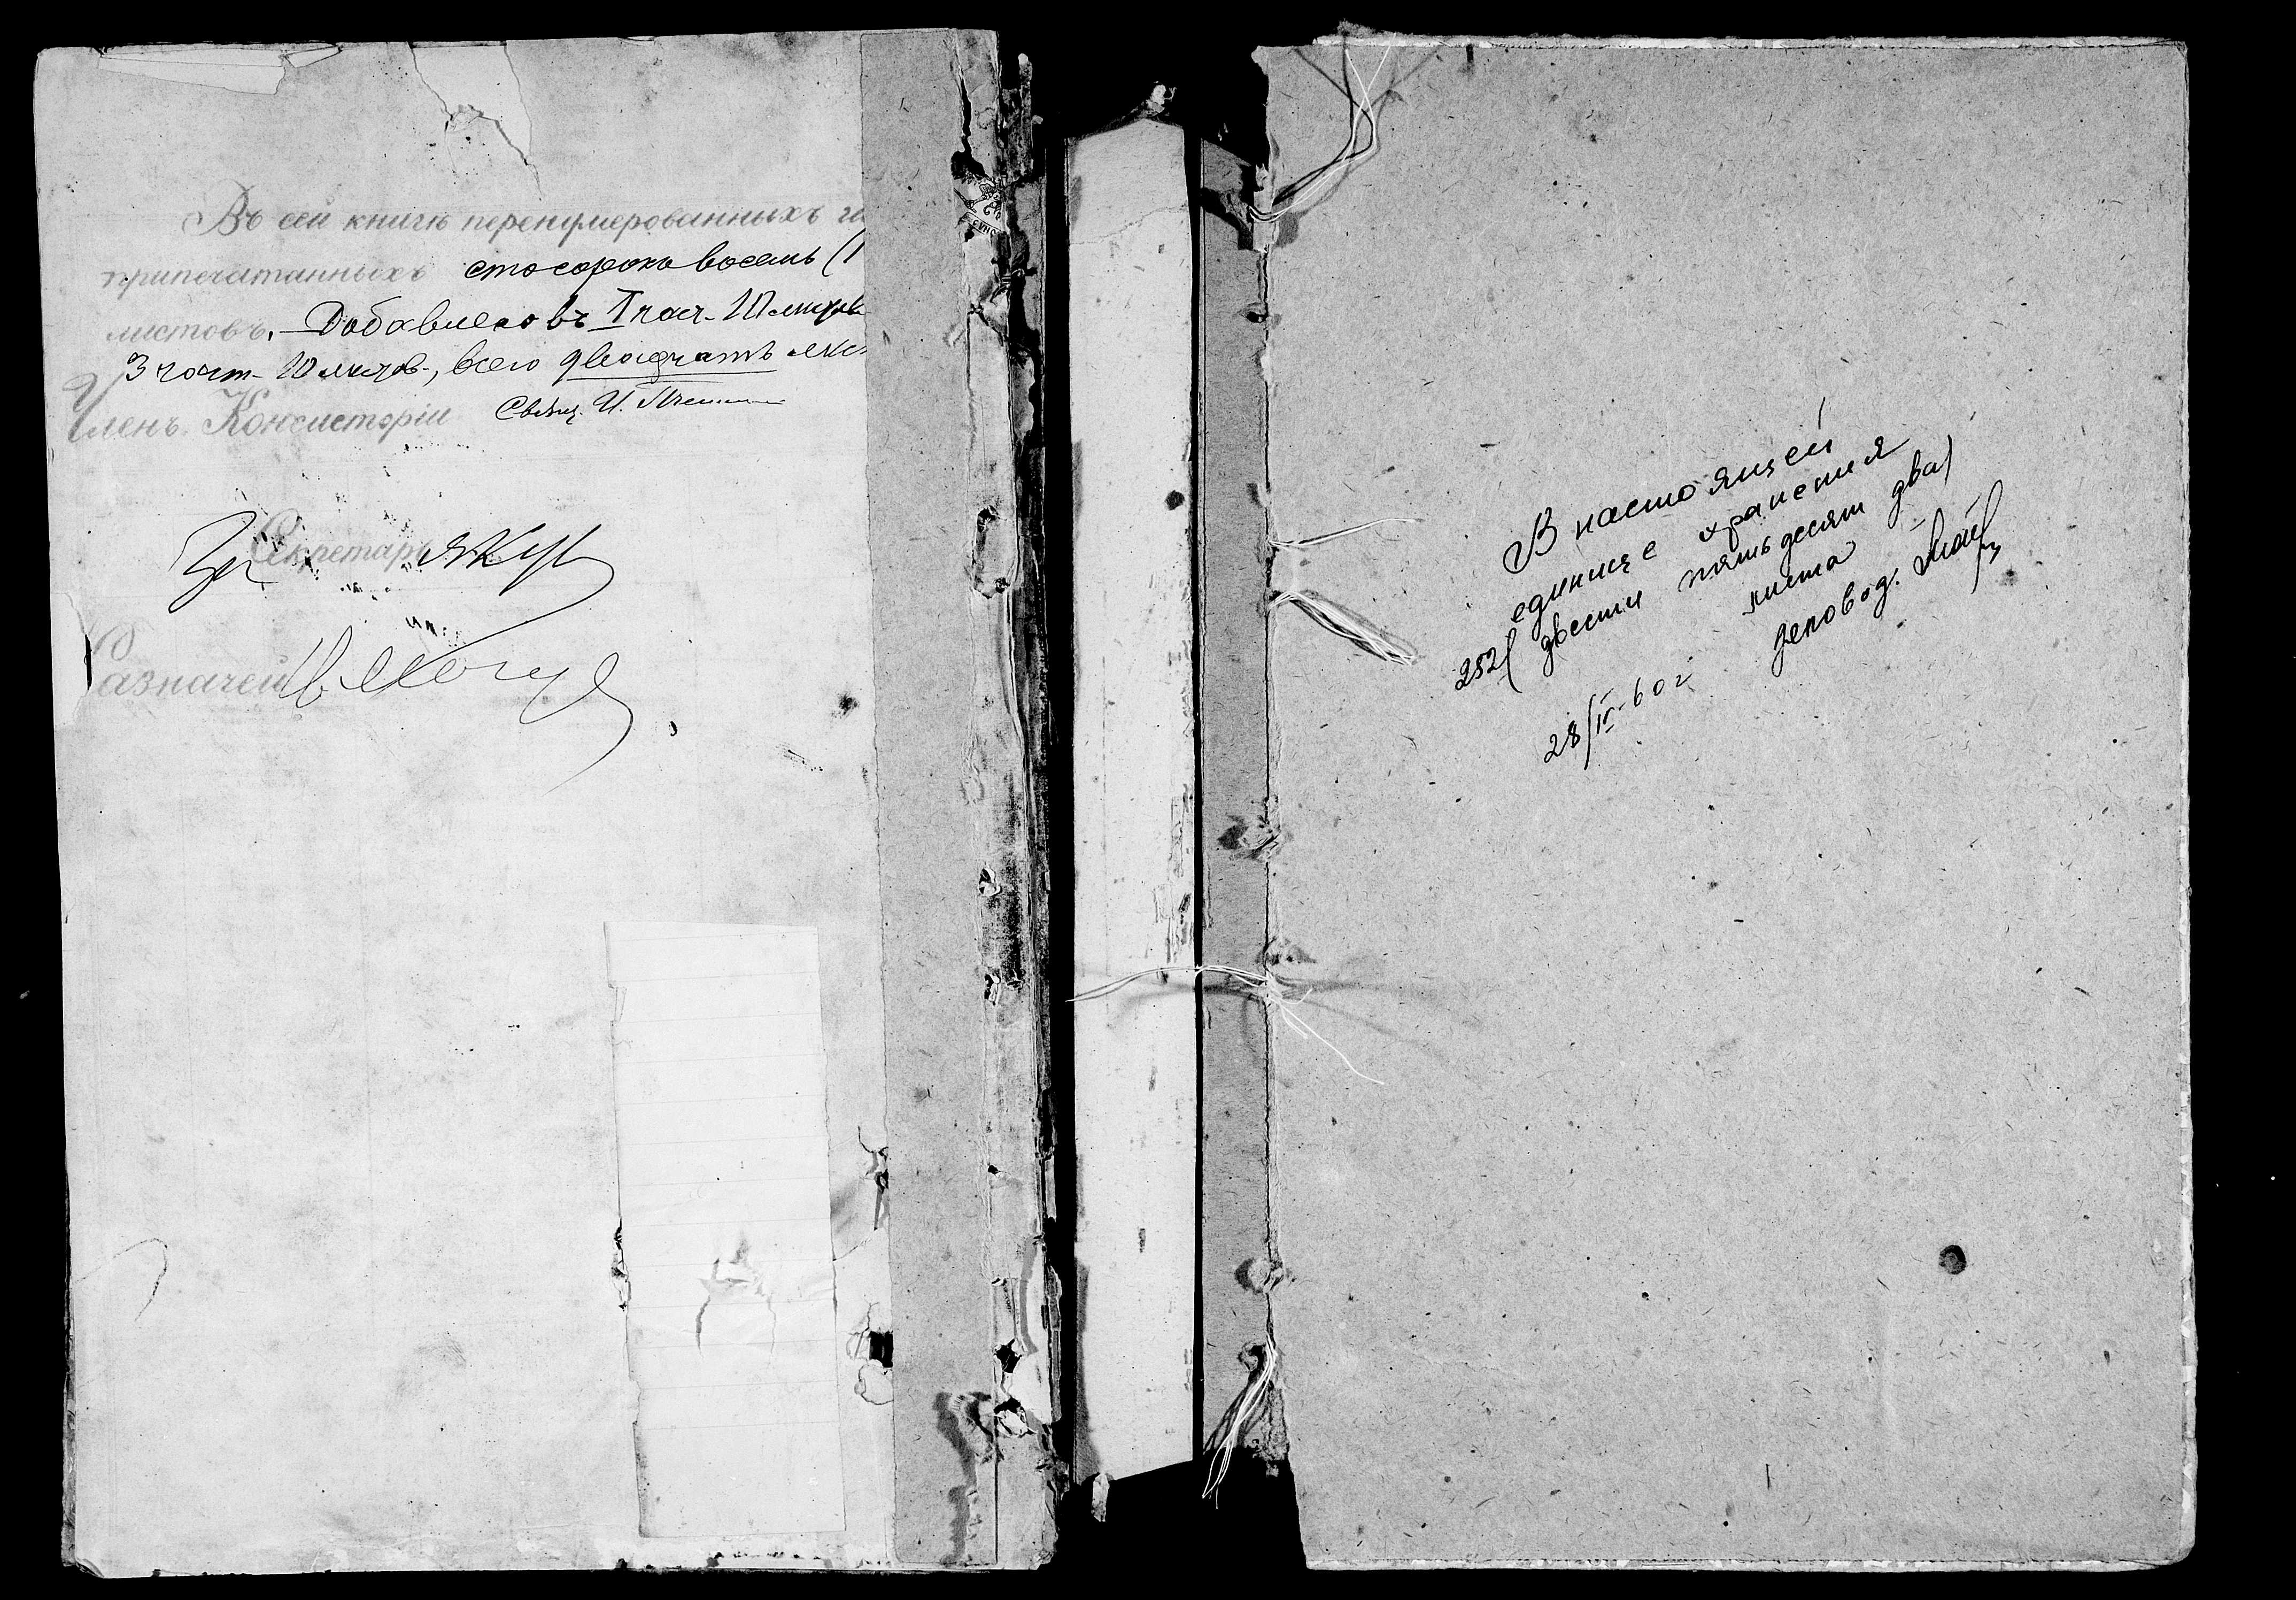 Въ сей книгѣ перенумерованныхъ и
припечатанныхъ сто сорокъ восемь (1
листовъ. Добавлено въ I част. 10 листов
3 част. 10 листов., всего двадцать
Членъ Консисторіи Свящ. И.
Секретарь
Казначей
В настоящей
единице хранения
252 (двести пятьдесят два)
листа
28/IV-60 г
деловод.